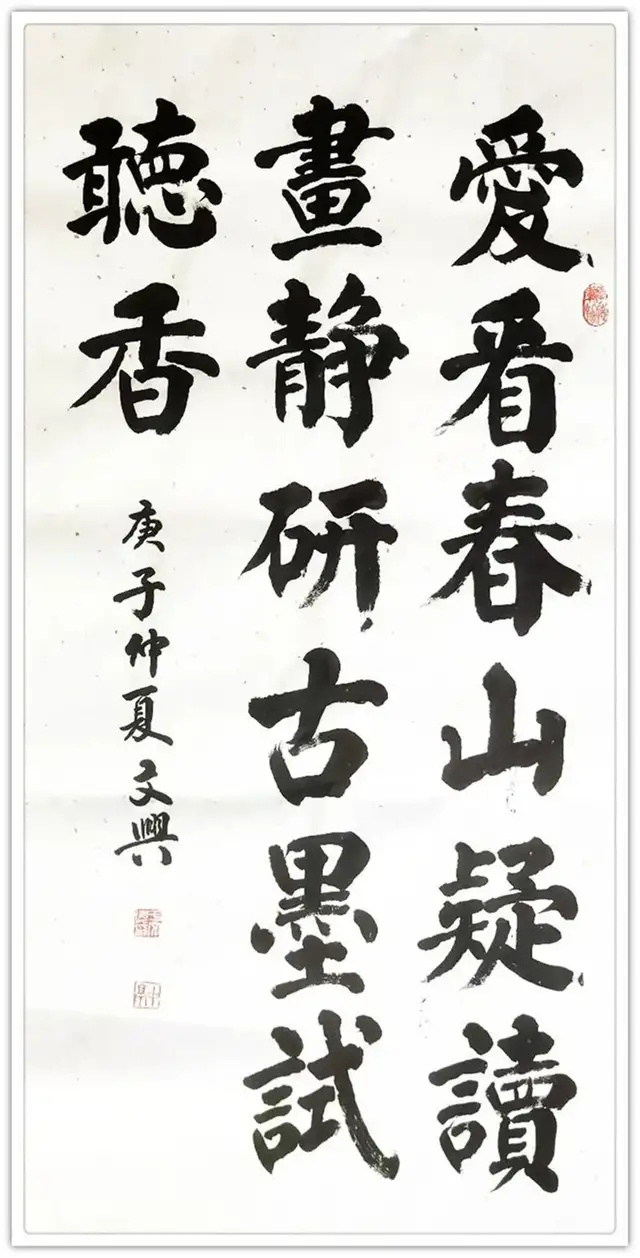 愛看春山疑讀
畫靜研古墨試
聽香
庚子仲夏文興